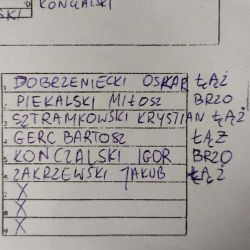 KONCALSKI
SKI
1 DOBRZENIECKI OSKAR ŁĄŻ
2 PIEKALSKI MIŁOSZ BRZO
3 SZTRAMKOWSKI KRYSTIAN ŁĄŻ
4 GERC BARTOSZ ŁĄŻ
5 KOŃCZALSKI IGOR BRZO
6 ZAKRZEWSKI JAKUB ŁĄŻ
7 X
8 X
9 X